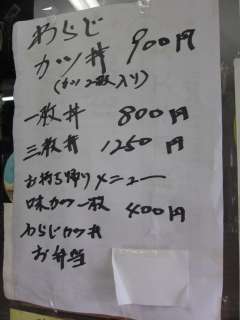 わらじ
カツ丼 900円
(カツ2枚入り)
一枚丼 800円
三枚丼 1250円
お持ち帰りメニュー
味カツ一枚 400円
わらじカツ丼
お弁当